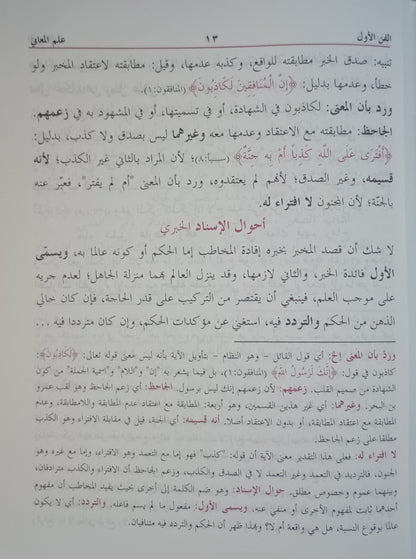 الفن الأول ١٣ علم المعاني
تنبيه: صدق الخبر مطابقته للواقع، وكذبه عدمها، وقيل: مطابقته لاعتقاد المخبر ولو
خطأ، وعدمها بدليل: ﴿إِنَّ الْمُنَافِقِينَ لَكَاذِبُونَ﴾ (المنافقون:١).
ورد بأن المعنى: لكاذبون في الشهادة، أو في تسميتها، أو في المشهود به في زعمهم.
الجاحظ: مطابقته مع الاعتقاد وعدمها معه وغيرهما ليس بصدق ولا كذب، بدليل:
﴿أَفْتَرَى عَلَى اللَّهِ كَذِباً أَمْ بِهِ جِنَّةٌ﴾ (سبأ:٨)؛ لأن المراد بالثاني غير الكذب؛ لأنه
قسيمه، وغير الصدق؛ لأنهم لم يعتقدوه، ورد بأن المعنى "أم لم يفتر"، فعبّر عنه
بالجنّة؛ لأن المجنون لا افتراء له.
أحوال الإسناد الخبري
لا شك أن قصد المخبر بخبره إفادة المخاطب إما الحكم أو كونه عالما به، ويسمّى
الأول فائدة الخبر، والثاني لازمها، وقد ينزل العالم بهما منزلة الجاهل؛ لعدم جريه
على موجب العلم، فينبغي أن يقتصر من التركيب على قدر الحاجة، فإن كان خالي
الذهن من الحكم والتردد فيه، استغني عن مؤكدات الحكم، وإن كان مترددا فيه ...
وردّ بأن المعنى إلخ: أي قول القائل – وهو النظام – بتأويل الآية بأنه ليس معنى قوله تعالى: ﴿لَكَاذِبُونَ﴾:
كاذبون في قول: ﴿إِنَّكَ لَرَسُولُ اللَّهِ﴾ (المنافقون:١)، بل فيما يشعر به "إن" و"اللام" و"اسمية الجملة" من كون
الشهادة من صميم القلب. زعمهم: لأن زعمهم إنك ليس برسول. الجاحظ: أي زعم الجاحظ وهو لقب عمرو
بن البحر. وغيرهما: أي غير هذين القسمين، وهو أربعة: المطابقة مع اعتقاد عدم المطابقة واللامطابقة، وعدم
المطابقة مع اعتقاد المطابقة، أو بدون الاعتقاد أصلا. أنه قسيمه: أي الجنة، قيل في مقابلة الافتراء وهو الكذب
مطلقا على زعم الجاحظ.
لا افتراء له: فعلى هذا التقدير معنى الآية أن قوله: "كذب" فهو إما مع التعمد وهو الافتراء، وإما مع غيره وهو
الجنون، فالترديد في التعمد وغير التعمد لا في الصدق والكذب، وزعم الجاحظ أن الافتراء والكذب مترادفان،
وبينهما عموم وخصوص مطلق. حوال الإسناد: وهو ضم الكلمة إلى أخرى بحيث يفيد المخاطب أن مفهوم
أحدهما ثابت لمفهوم الأخرى أو منفي عنه. ويسمى الأول: مفعول ما لم يسم فاعله. والتردد: أي لا يكون
عالما بوقوع النسبة، هل هي واقعة أم لا؟ وبهذا ظهر أن الحكم والتردد فيه متنافيان.